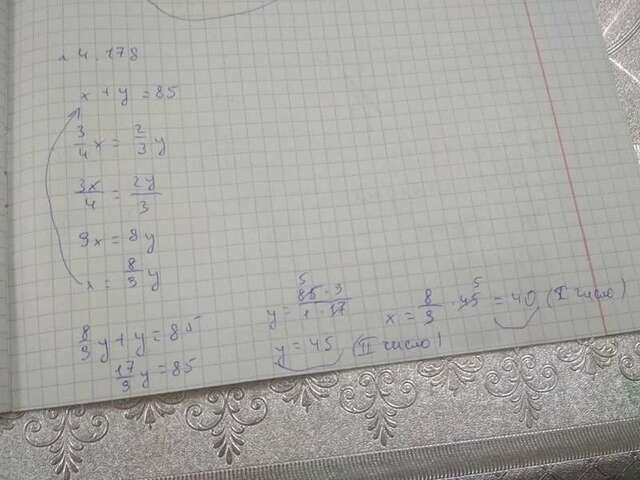 4.178
x + y = 85
3/4 x = 2/3 y
3x/4 = 2y/3
9x = 8y
x = 8/9 y
8/9 y + y = 85
17/9 y = 85
y = 85 · 9 / 1 · 17 5
y = 45 (II число)
x = 8/9 · 45 5 = 40 (I число)